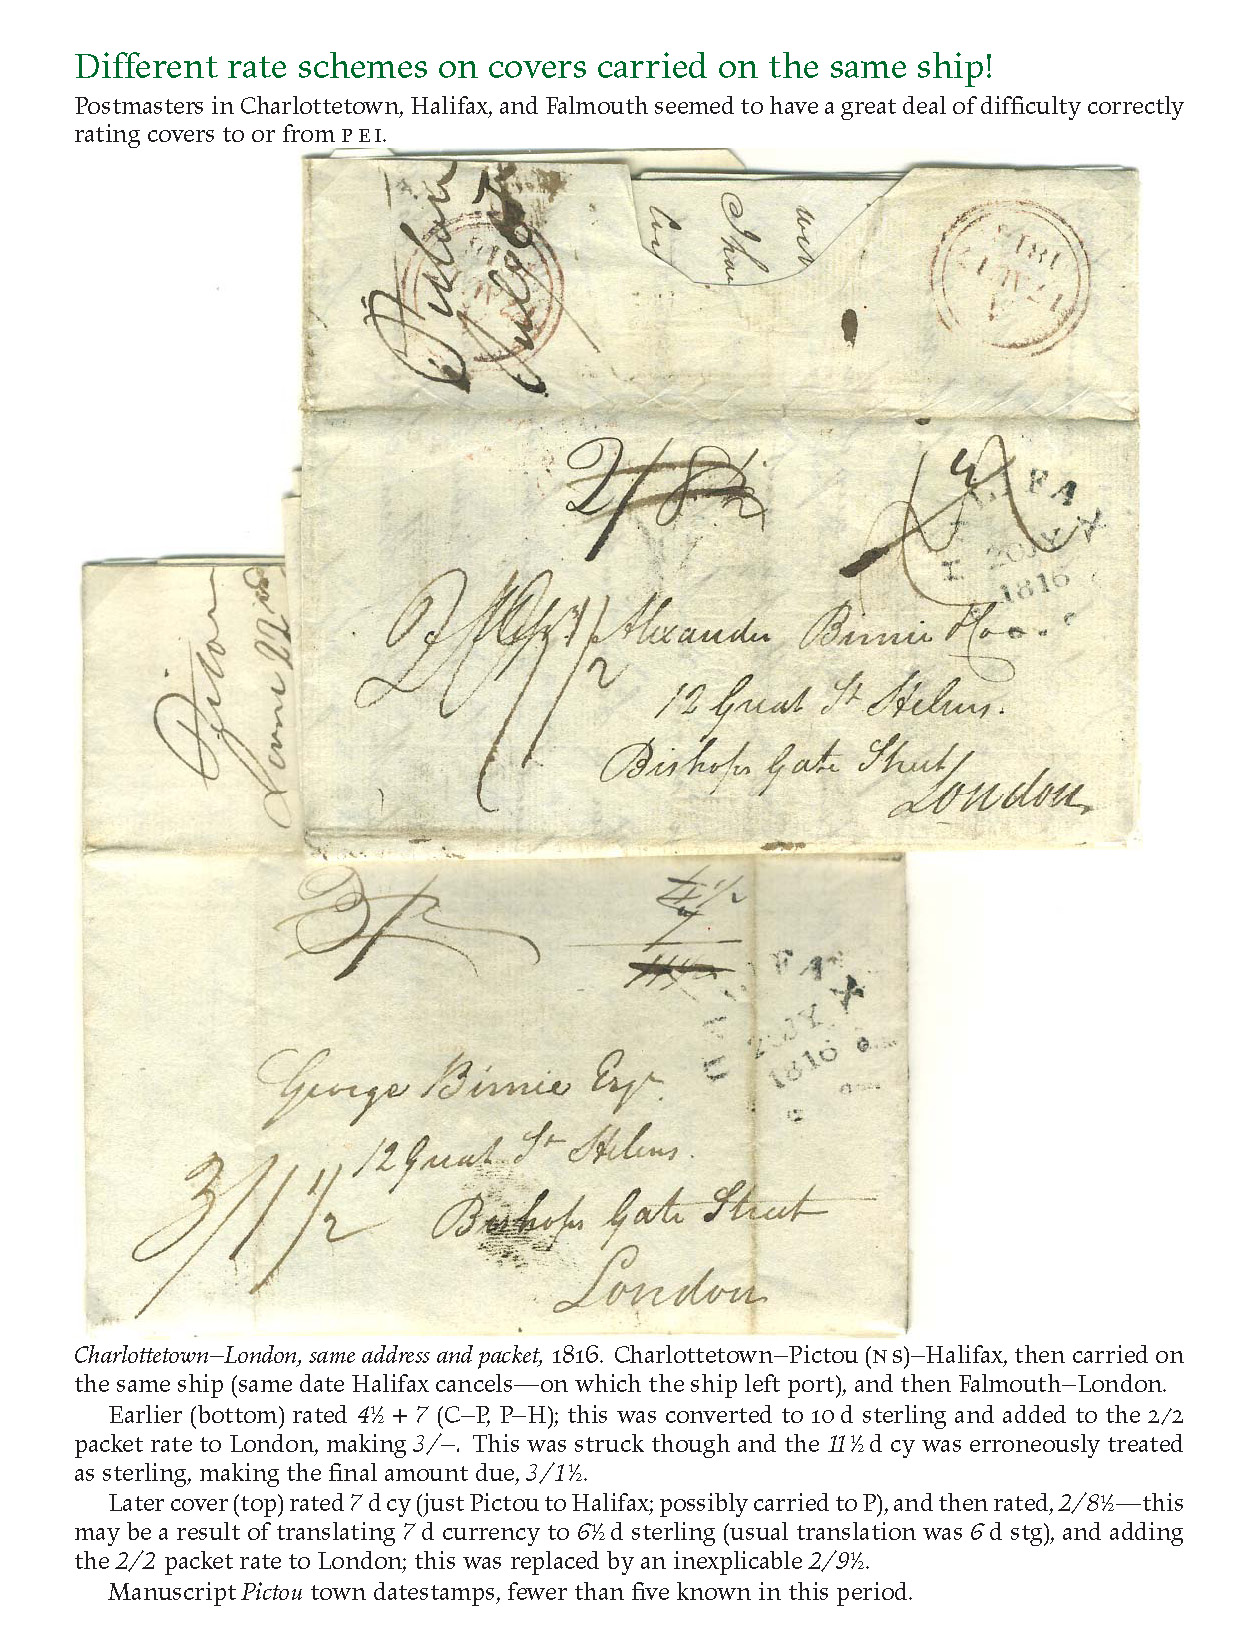 Different rate schemes on covers carried on the same ship!
Postmasters in Charlottetown, Halifax, and Falmouth seemed to have a great deal of difficulty correctly
rating covers to or from PEI.
Pictou
2/8½
HALIFAX
20JY
1816
Alexander Binnie
12 Great St Helens.
Bishops Gate Street
London
Pictou
June 22
3/-
4½
7
11½
HALIFAX
20JY
1816
George Binnie Esqr.
12 Great St Helens.
3/1½
Bishops Gate Street
London
Charlottetown–London, same address and packet, 1816. Charlottetown–Pictou (NS)–Halifax, then carried on
the same ship (same date Halifax cancels—on which the ship left port), and then Falmouth–London.
Earlier (bottom) rated 4½ + 7 (C–P, P–H); this was converted to 10 d sterling and added to the 2/2
packet rate to London, making 3/–. This was struck though and the 11½ d cy was erroneously treated
as sterling, making the final amount due, 3/1½.
Later cover (top) rated 7 d cy (just Pictou to Halifax; possibly carried to P), and then rated, 2/8½—this
may be a result of translating 7 d currency to 6½ d sterling (usual translation was 6 d stg), and adding
the 2/2 packet rate to London; this was replaced by an inexplicable 2/9½.
Manuscript Pictou town datestamps, fewer than five known in this period.